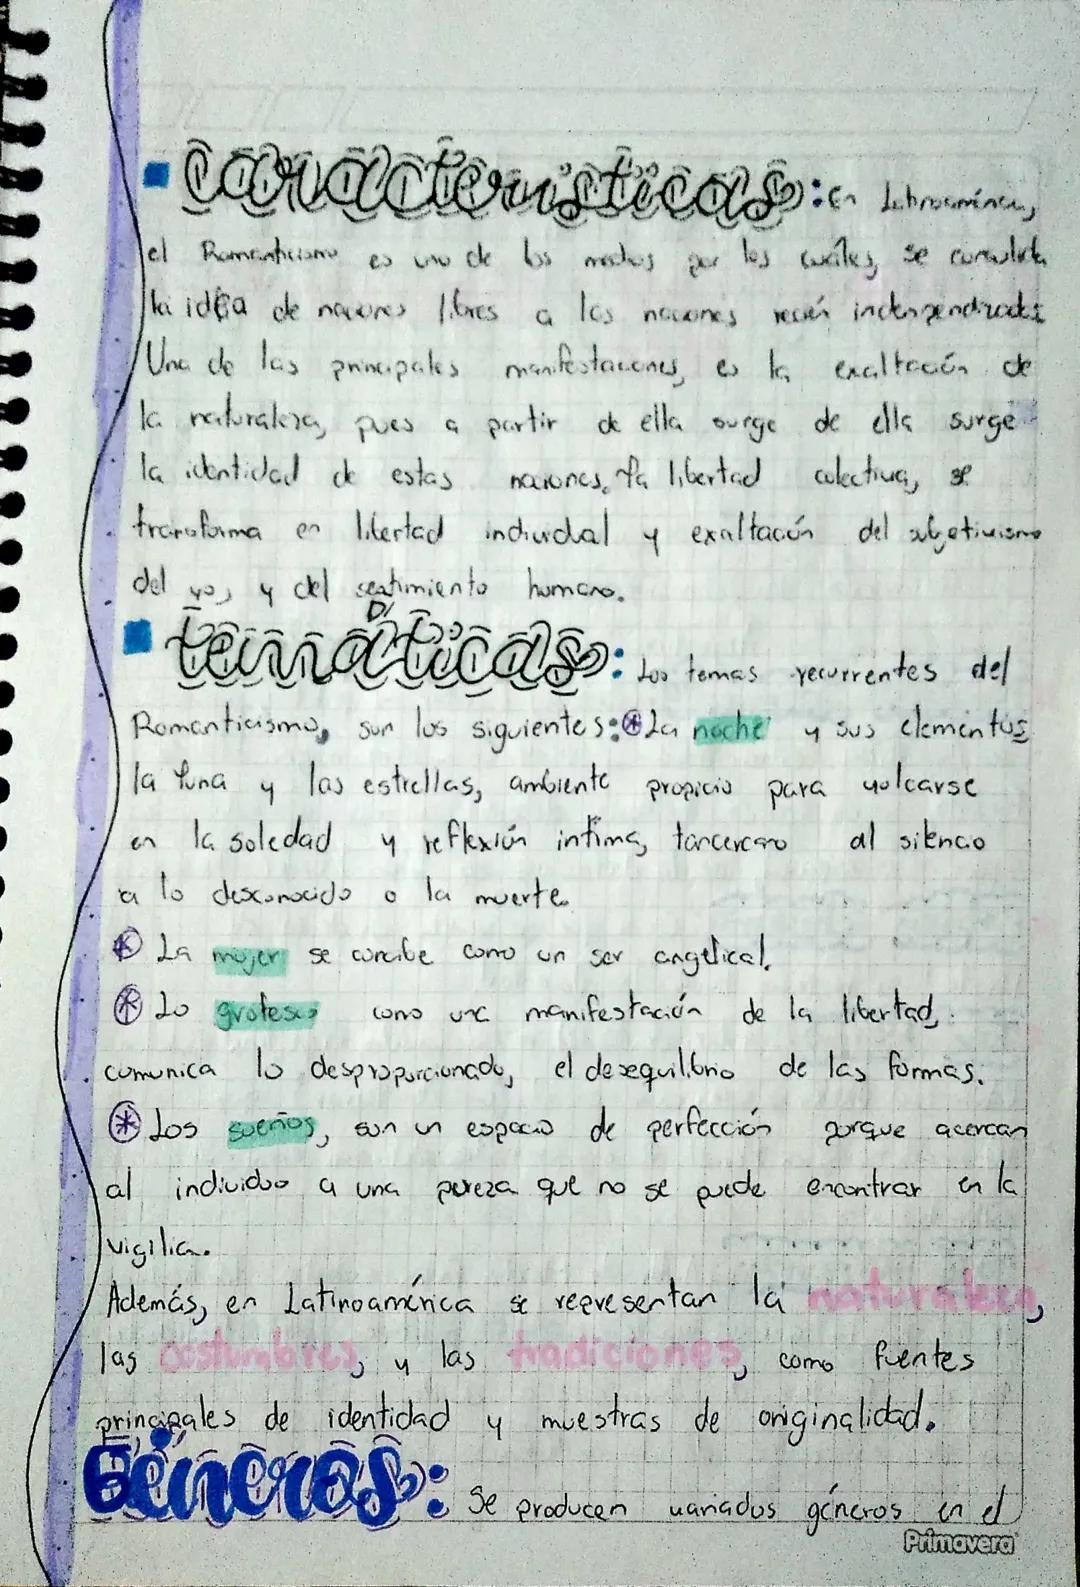 Características: En Latinoamérica,
el Romanticismo es uno de los medios por los cuáles, se consolida
la idea de naciones libres a las naciones recién independizadas
Una de las principales manifestaciones, es la exaltación de
la naturaleza, pues a partir de ella surge de ella surge
la identidad de estas naciones, la libertad colectiva, se
transforma en libertad individual y exaltación del subjetivismo
del yo, y del sentimiento humano.
temáticas: Los temas recurrentes del
Romanticismo, son los siguientes: * La noche y sus elementos
la luna y las estrellas, ambiente propicio para volcarse
en la soledad y reflexión intima, al silencio
a lo desconocido o la muerte.
* La mujer se concibe como un ser angelical.
* Lo grotesco como una manifestación de la libertad,
comunica lo desproporcionado, el desequilibrio de las formas.
* Los sueños, son un espacio de perfección porque acercan
al individuo a una pureza que no se puede encontrar en la
vigilia.
Además, en Latinoamérica se representan la naturaleza,
las costumbres, y las tradiciones, como fuentes
principales de identidad y muestras de originalidad.
Géneros: Se producen variados géneros en el
Primavera